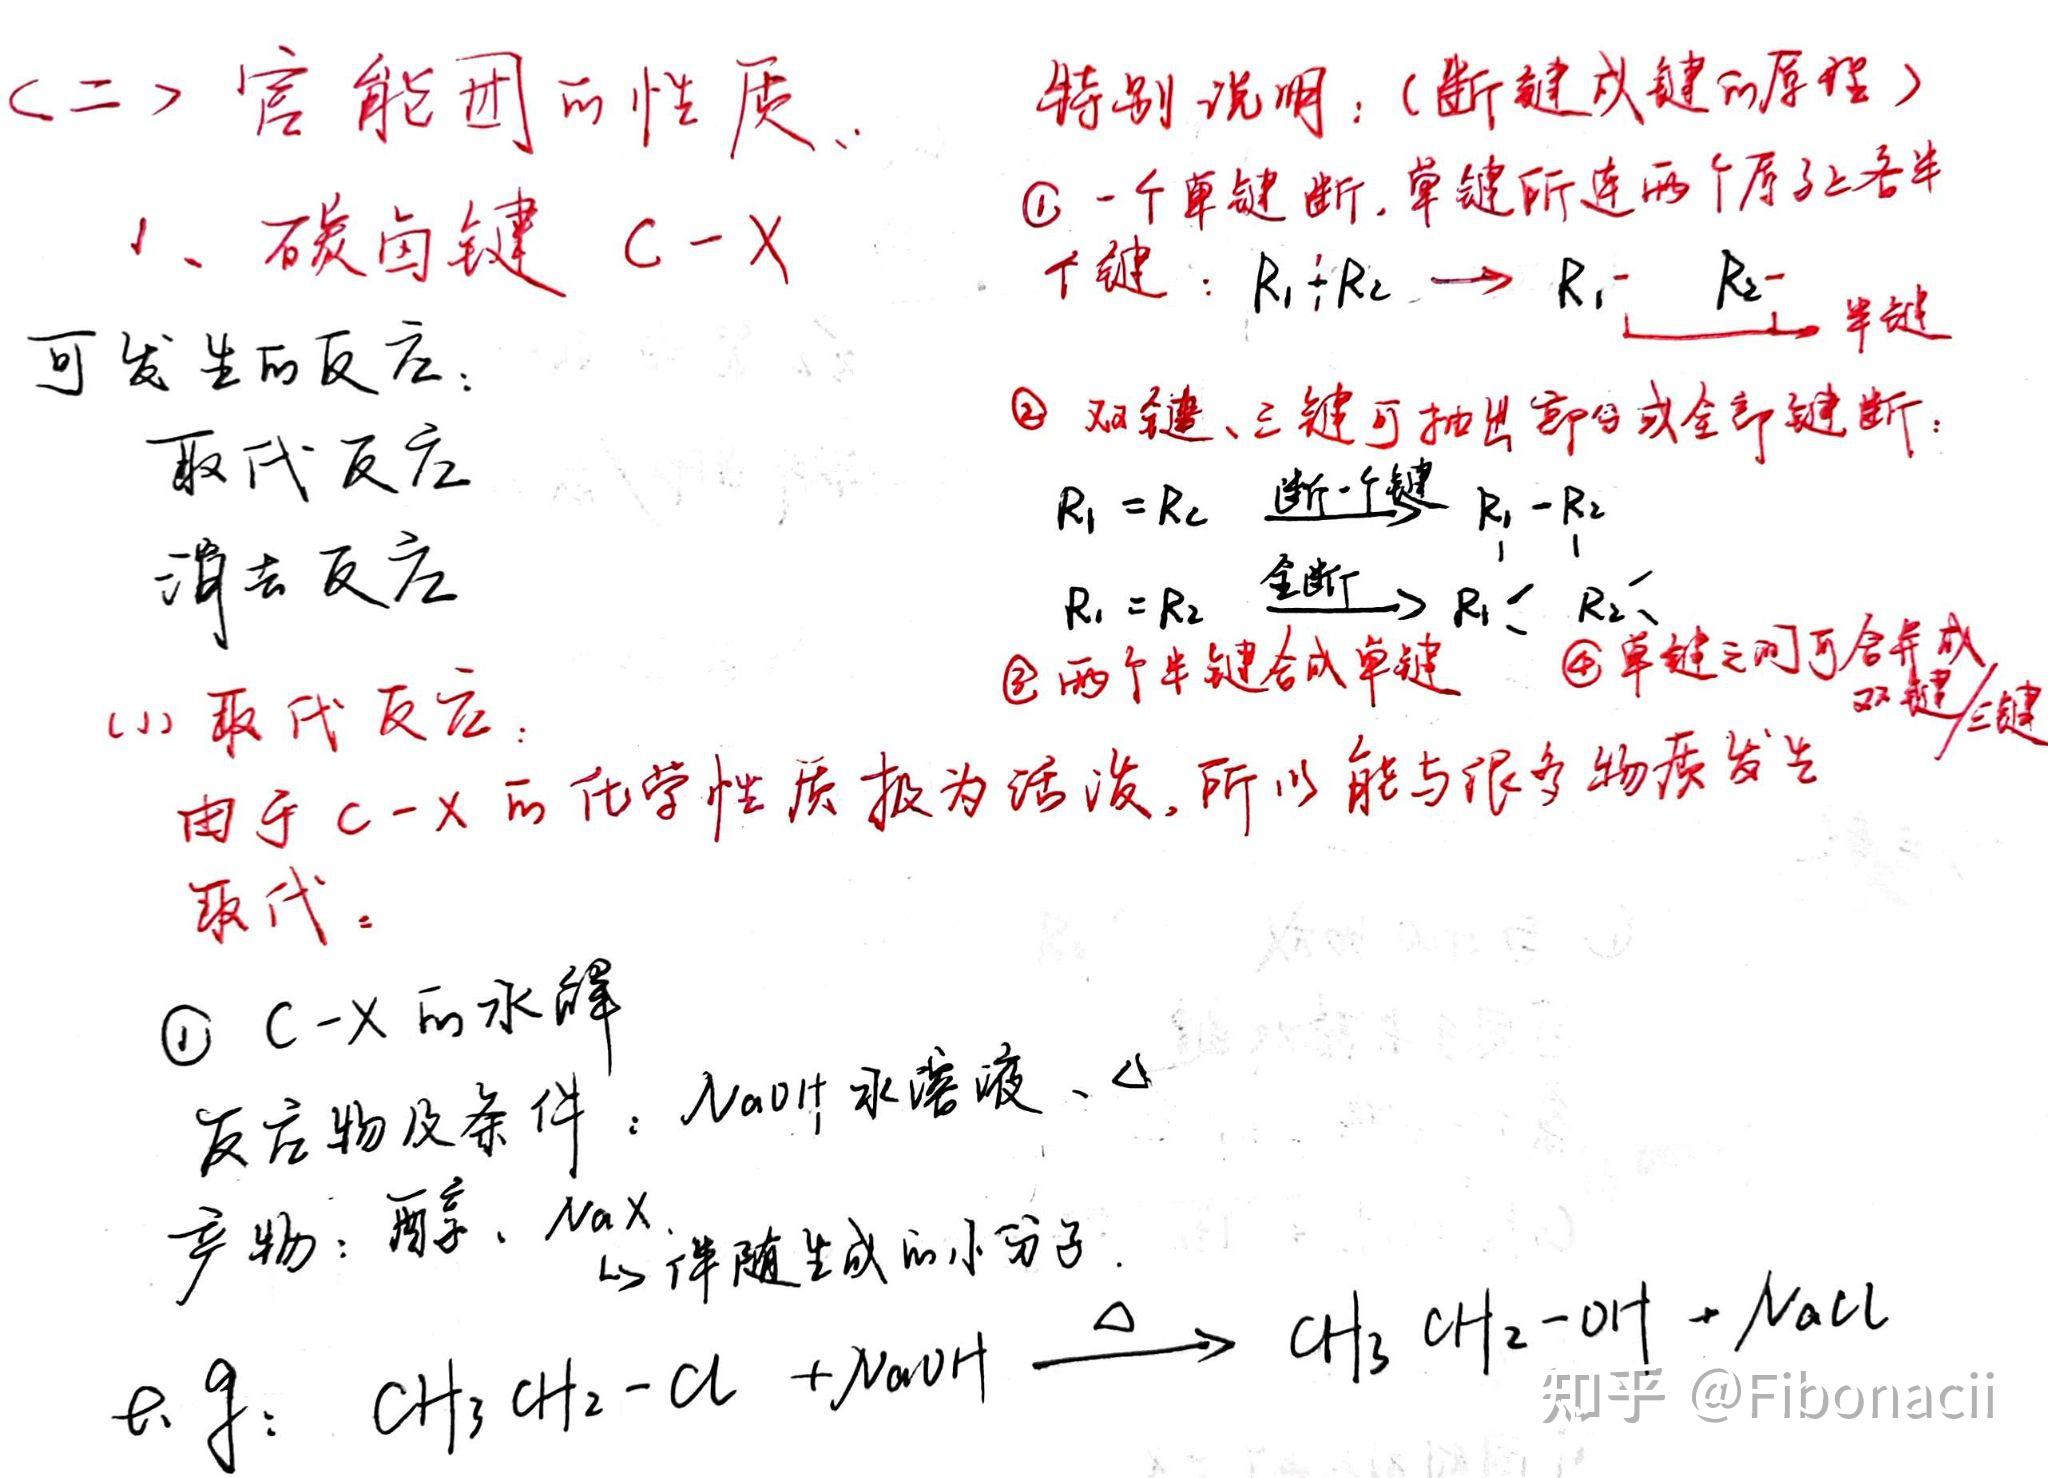 （二）官能团的性质
1、碳卤键 C－X
可发生的反应：
取代反应
消去反应
特别说明：（断键成键的原理）
① 一个单键断，单键所连两个原子上各半
个键：R₁÷R₂ → R₁- R₂-
半键
② 双键、三键可抽出部分或全部键断：
R₁＝R₂ 断一个键 R₁－R₂
R₁＝R₂ 全断 R₁ R₂
③ 两个半键合成单键
④ 单键之间可合并成
双键/三键
(1) 取代反应：
由于C－X的化学性质极为活泼，所以能与很多物质发生
取代。
① C－X的水解
反应物及条件：NaOH水溶液、△
产物：醇、NaX.
↳伴随生成的小分子.
e.g： CH₃CH₂－Cl ＋NaOH △→ CH₃CH₂－OH ＋ NaCl
知乎 @Fibonacii